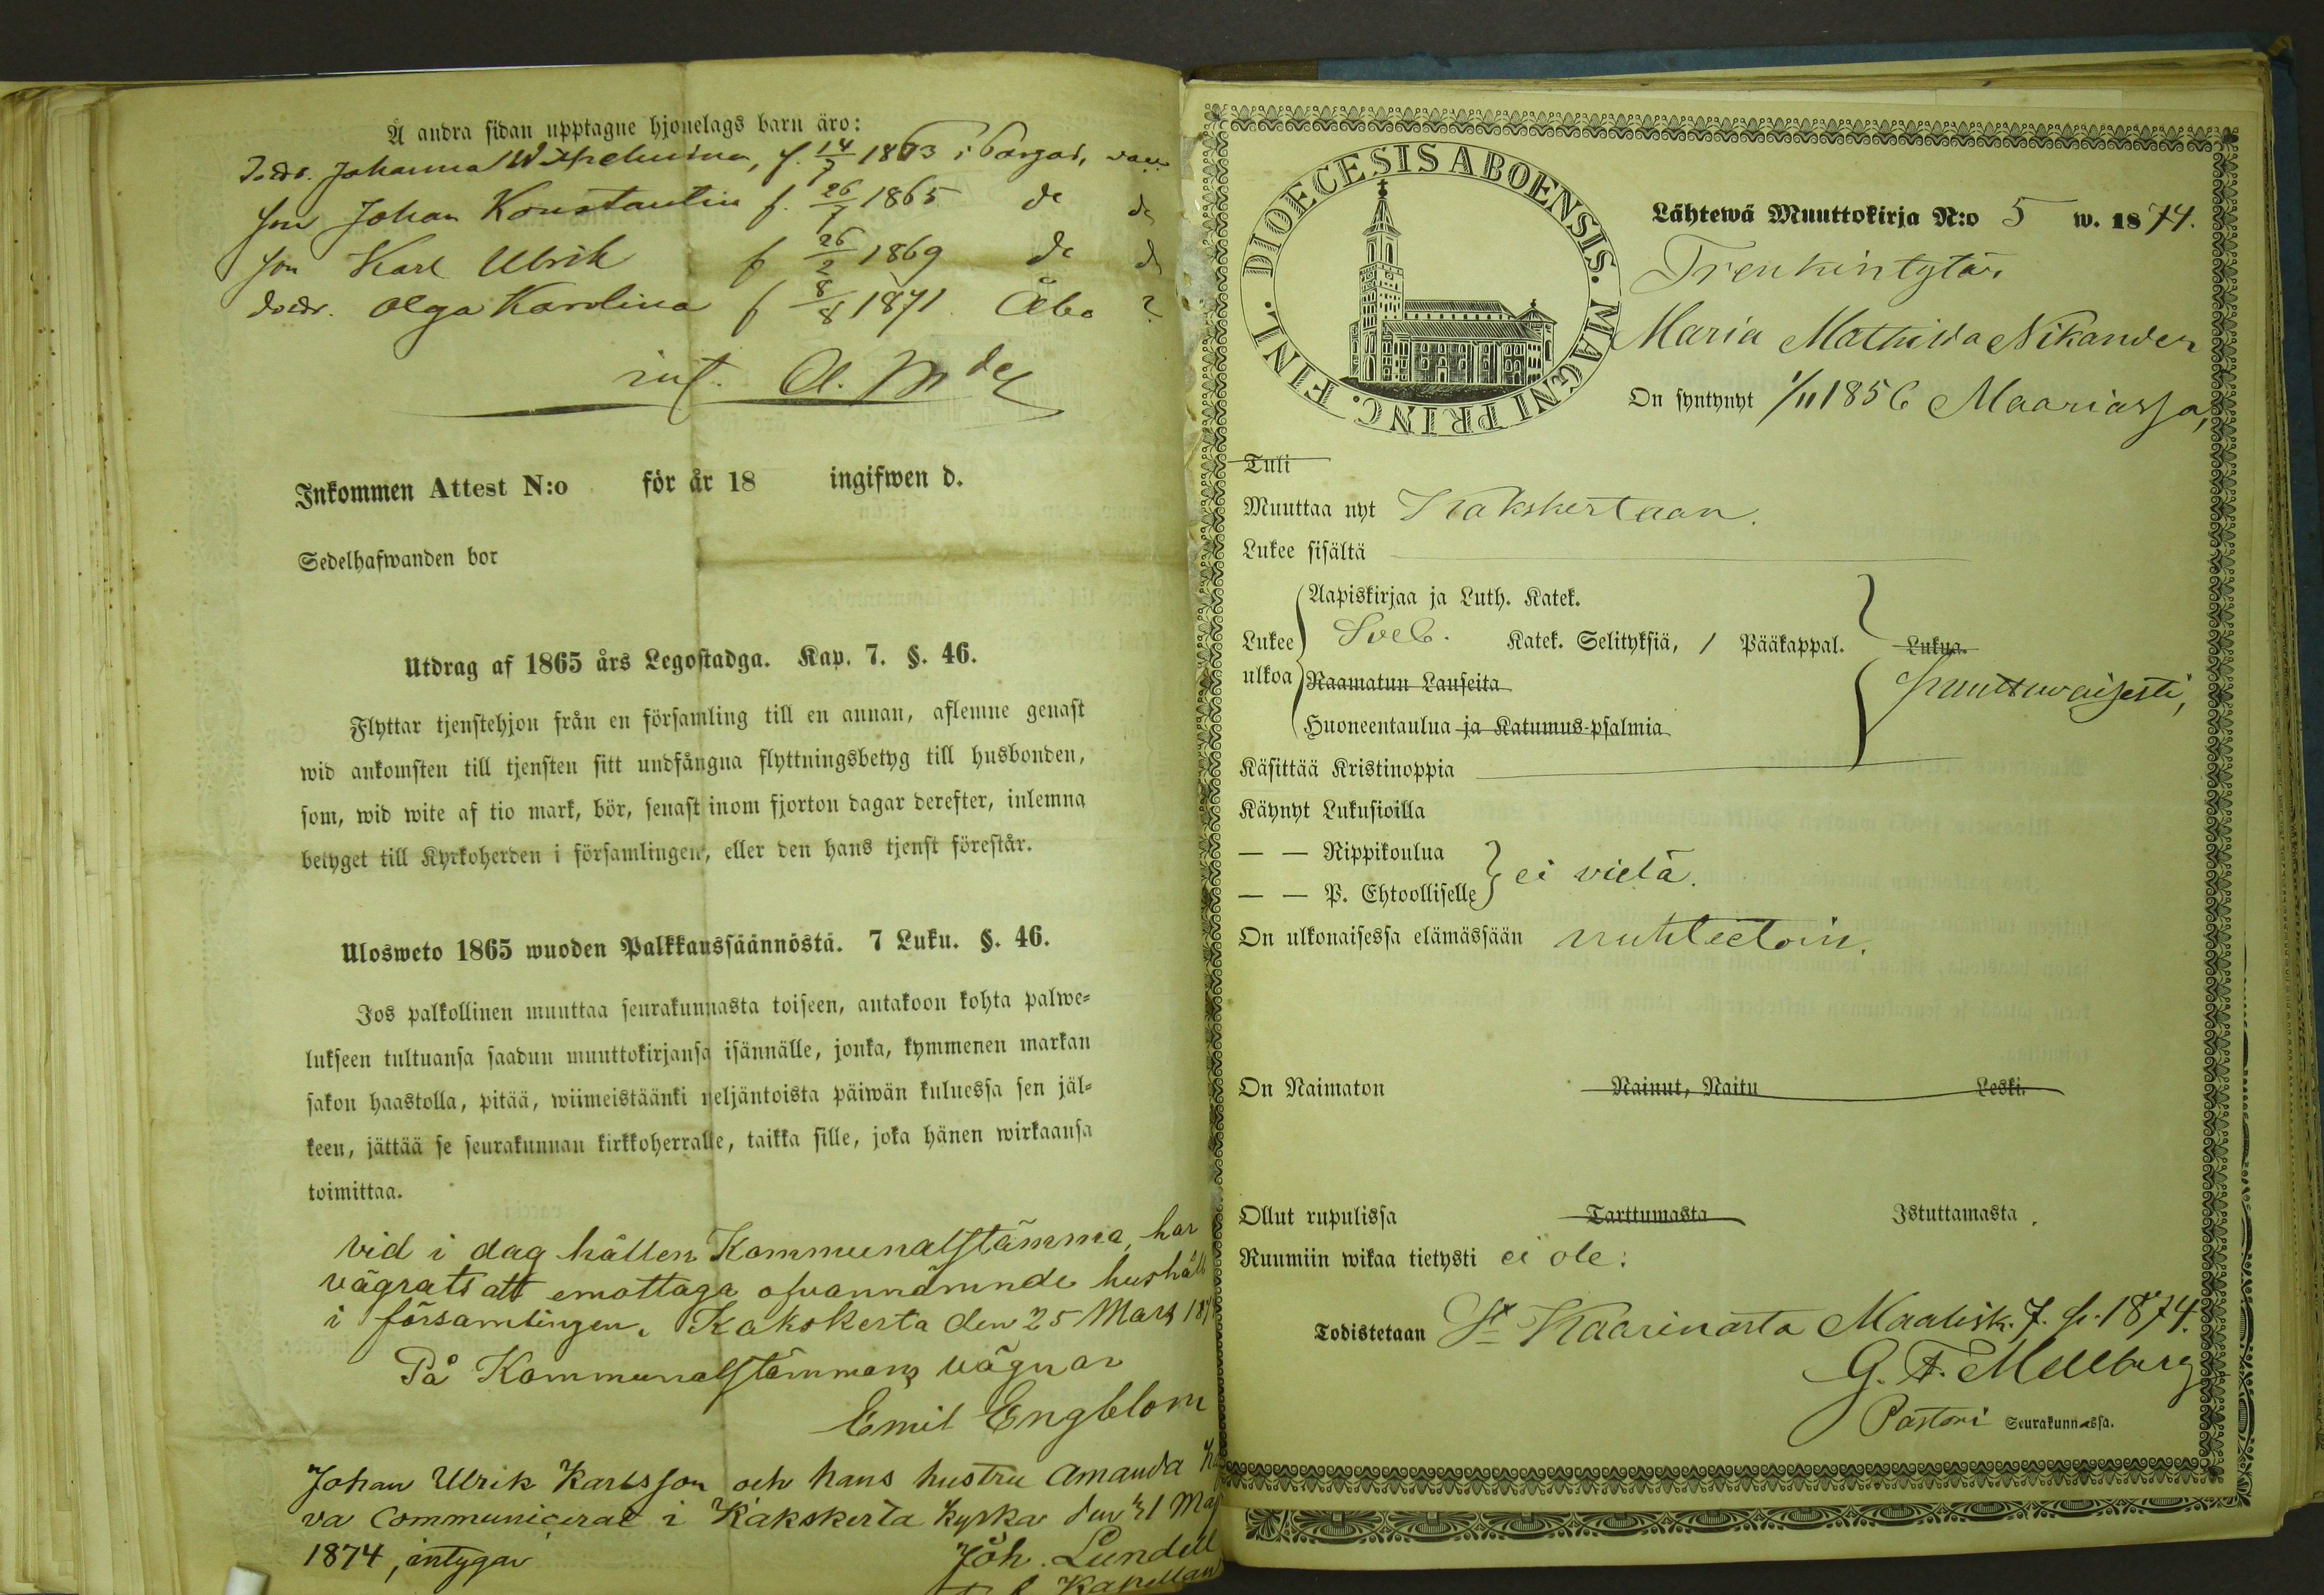 Å andra sidan upptagne hjonelags barn äro:
Johanna Wilhelmina, f. 14/7 1863 i Pargas, vacc
son Johan Konstantin f. 26/7 1865 do do
son Karl Ulrik f 26/2 1869 do do
dotr. Olga Karolina f 8/8 1871 Åbo ?
int.
Inkommen Attest N:o för år 18 ingifwen d.
Sedelhafwanden bor
Utdrag af 1865 års Legostadga. Kap. 7. §. 46.
Flyttar tjenstehjon från en församling till en annan, aflemne genast
wid ankomsten till tjensten sitt undfångna flyttningsbetyg till husbonden,
som, wid wite af tio mark, bör, senast inom fjorton dagar derefter, inlemna
betyget till Kyrkoherden i församlingen, eller den hans tjenst förestår.
Ulosweto 1865 wuoden Palkkaussäännöstä. 7 Luku. §. 46.
Jos palkollinen muuttaa seurakunnasta toiseen, antakoon kohta palwe=
lukseen tultuansa saadun muuttokirjansa isännälle, jonka, kymmenen markan
sakon haastolla, pitää, wiimeistäänki neljäntoista päiwän kuluessa sen jäl=
keen, jättää se seurakunnan kirkkoherralle, taikka sille, joka hänen wirkaansa
toimittaa.
Vid i dag hållen Kommunalstämma, har
vägrats att emottaga ofvannämnde hushåll
i församlingen. Kakskerta den 25 Mars 187
På Kommunalstämmans vägnar
Emil Engblom
Johan Ulrik Karlsson och hans hustru Amanda
va Communicerat i Kakskerta Kyrka den 31 Maj
1874, intygar
Joh. Lundell
Kapellan
DIOECESIS ABOENSIS. MAGNI PRINC. FINL.
Lähtewä Muuttokirja N:o 5 w. 1874.
Trenkintytär
Maria Mathilda Nikander
On syntynyt 1/11 1856 Maariassa,
Tuli
Muuttaa nyt Kakskertaan.
Lukee sisältä
Aapiskirjaa ja Luth. Katek.
Lukee Sveb. Katek. Selityksiä, 1 Pääkappal. Lukua.
ulkoa Raamatun Lauseita puuttuvaisesti,
Huoneentaulua ja Katumus-psalmia
Käsittää Kristinoppia
Käynyt Lukusioilla
— — Rippikoulua
ei vielä.
— — P. Ehtoolliselle
On ulkonaisessa elämässään nuhteetoin.
On Naimaton Nainut, Naitu Leski.
Ollut rupulissa Tarttumasta Istuttamasta.
Ruumiin wikaa tietysti ei ole.
Todistetaan St Kaarinasta Maalisk. 7. p. 1874.
G. F. Mellberg
Pastori Seurakunnassa.